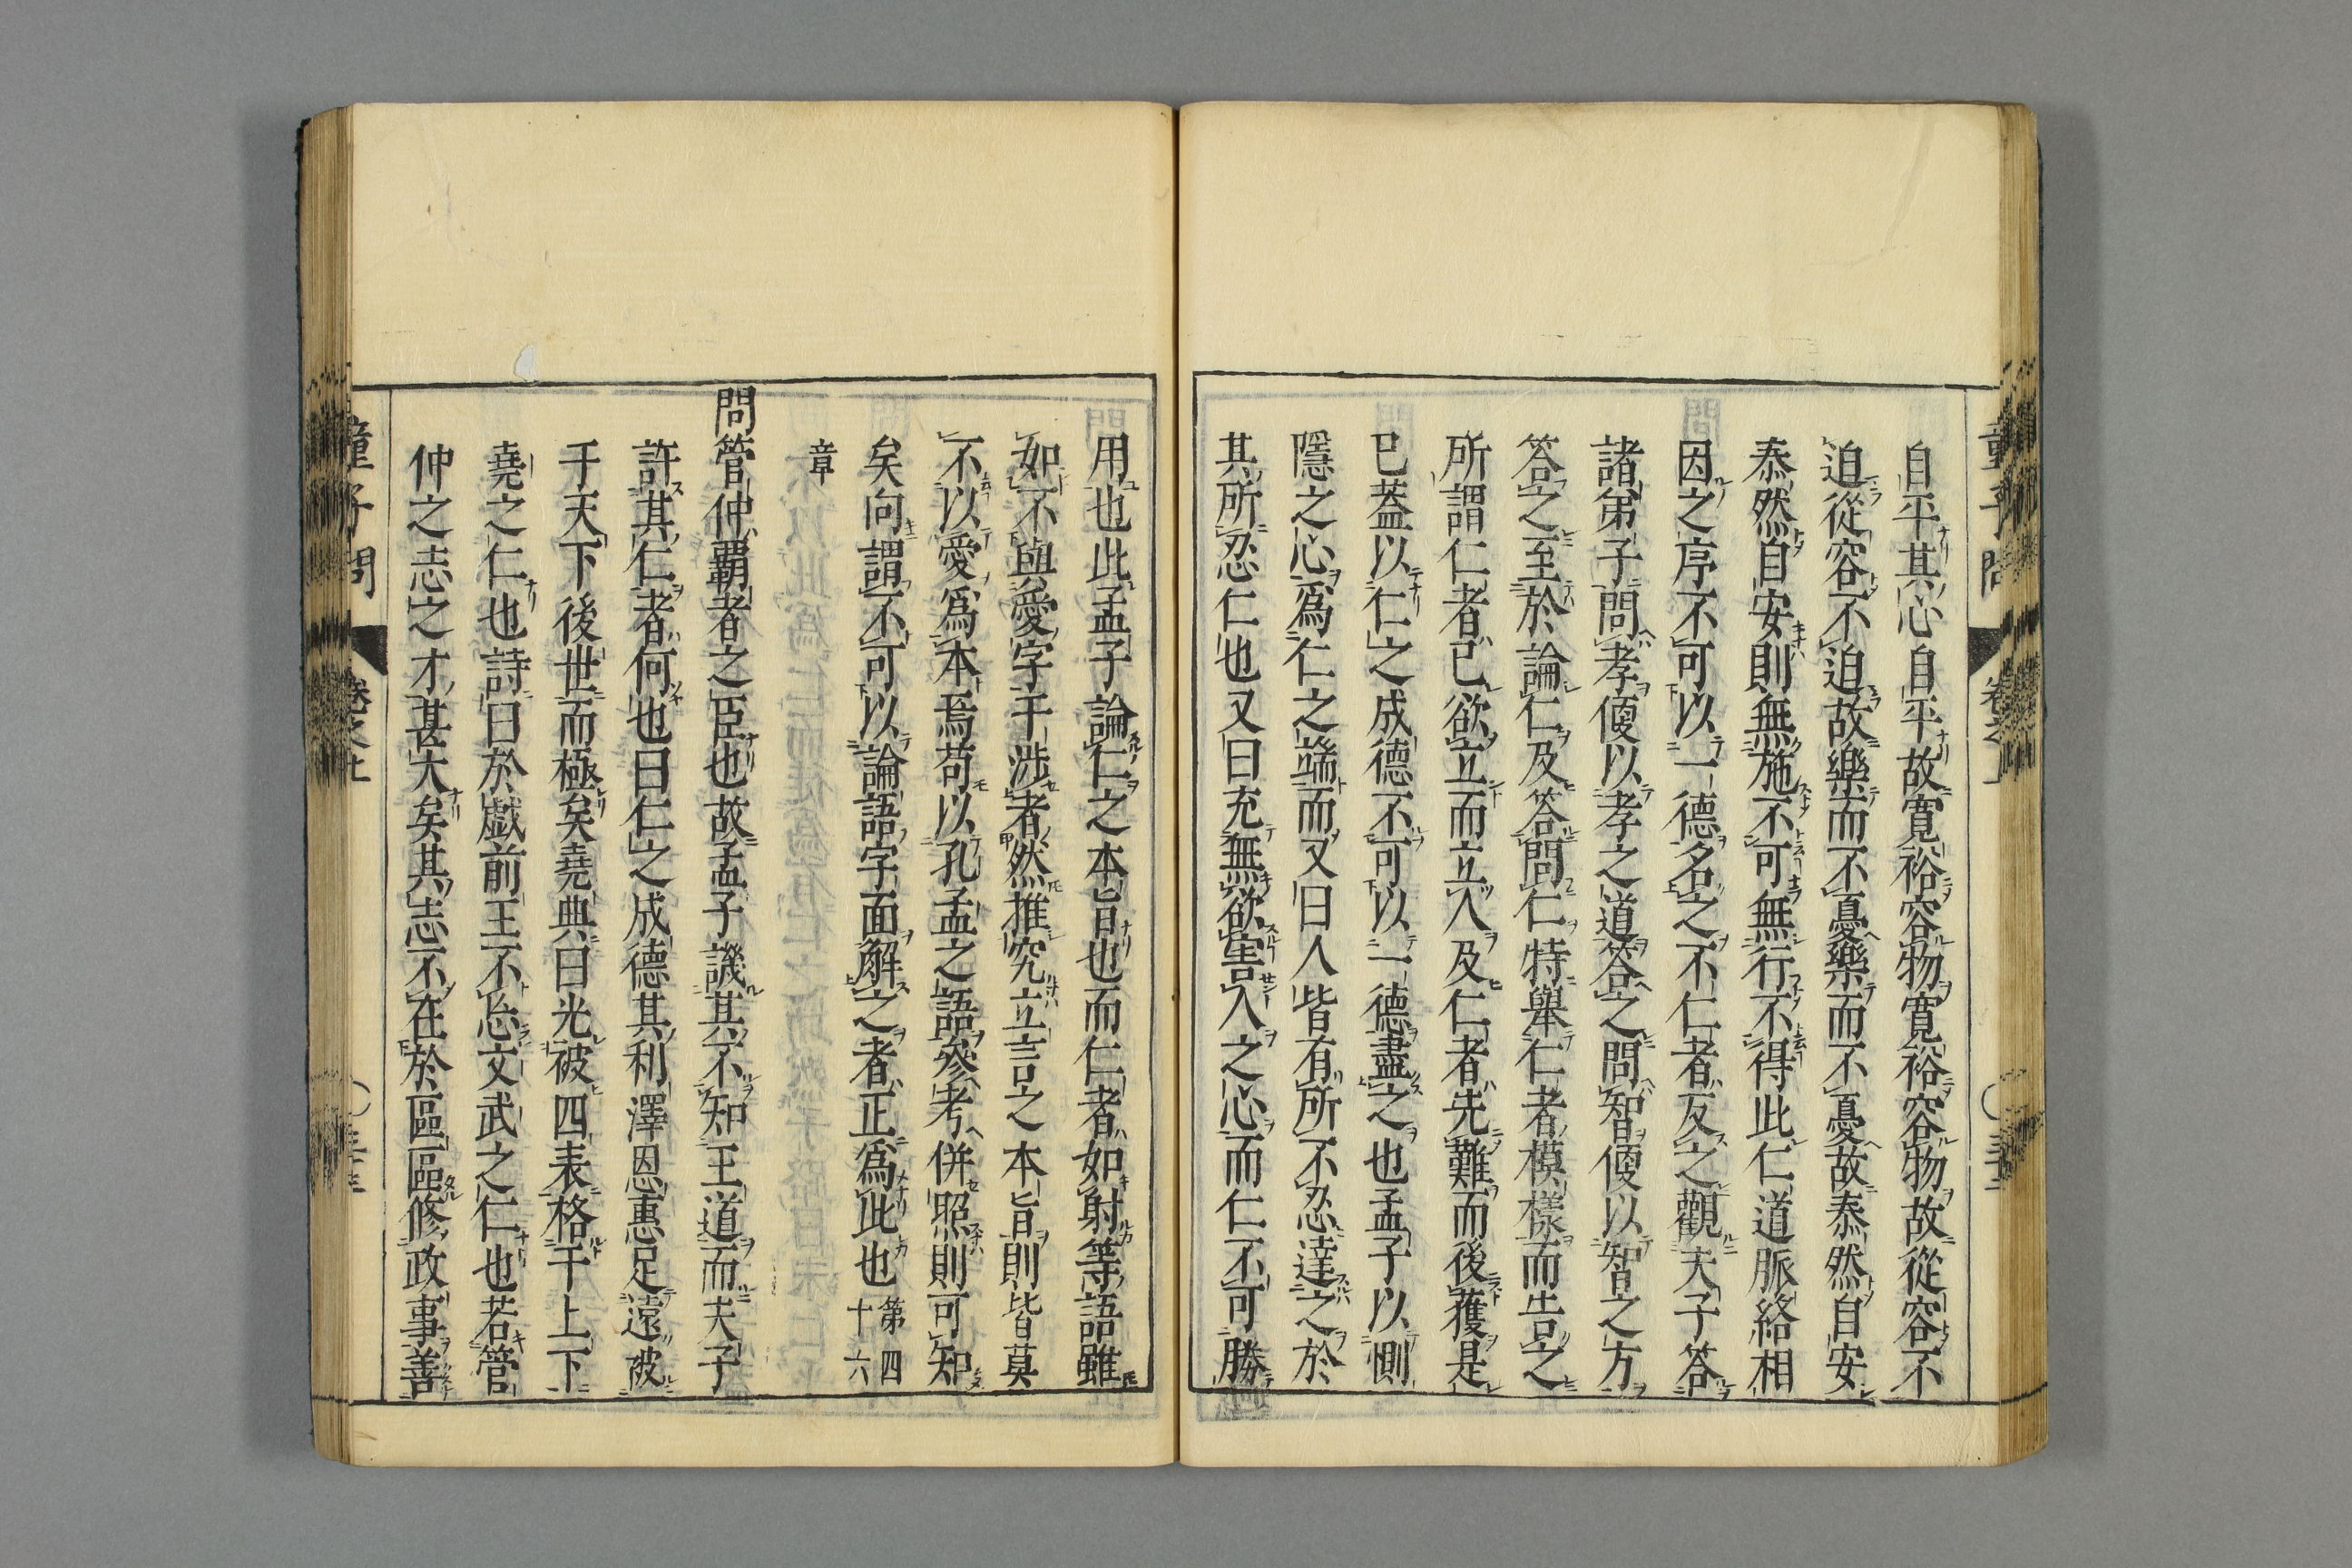 自平其心自平故寬裕容物寬裕容物故從容不
迫從容不迫故樂而不憂樂而不憂故泰然自安
泰然自安則無施不可無行不得此仁道脈絡相
因之序不可以一德名之不仁者反之觀夫子答
諸弟子問孝便以孝之道答之問智便以智之方
答之至於論仁及答問仁特舉仁者模樣而告之
所謂仁者己欲立而立人及仁者先難而後獲是
已蓋以仁之成德不可以一德盡之也孟子以惻
隱之心為仁之端而又曰人皆有所不忍達之於
其所忍仁也又曰充無欲害人之心而仁不可勝
用也此孟子論仁之本旨也而仁者如射等語雖
如不與愛字干涉者然推究立言之本旨則皆莫
不以愛爲本焉苟以孔孟之語參考併照則可知
矣向謂不可以論語字面解之者正爲此也第四十六
章
問管仲覇者之臣也故孟子譏其不知王道而夫子
許其仁者何也曰仁之成德其利澤恩惠足遠被
于天下後世而極矣堯典曰光被四表格于上下
堯之仁也詩曰於戲前王不忘文武之仁也若管
仲之志之才甚大矣其志不在於區區修政事善
童子問
卷之上